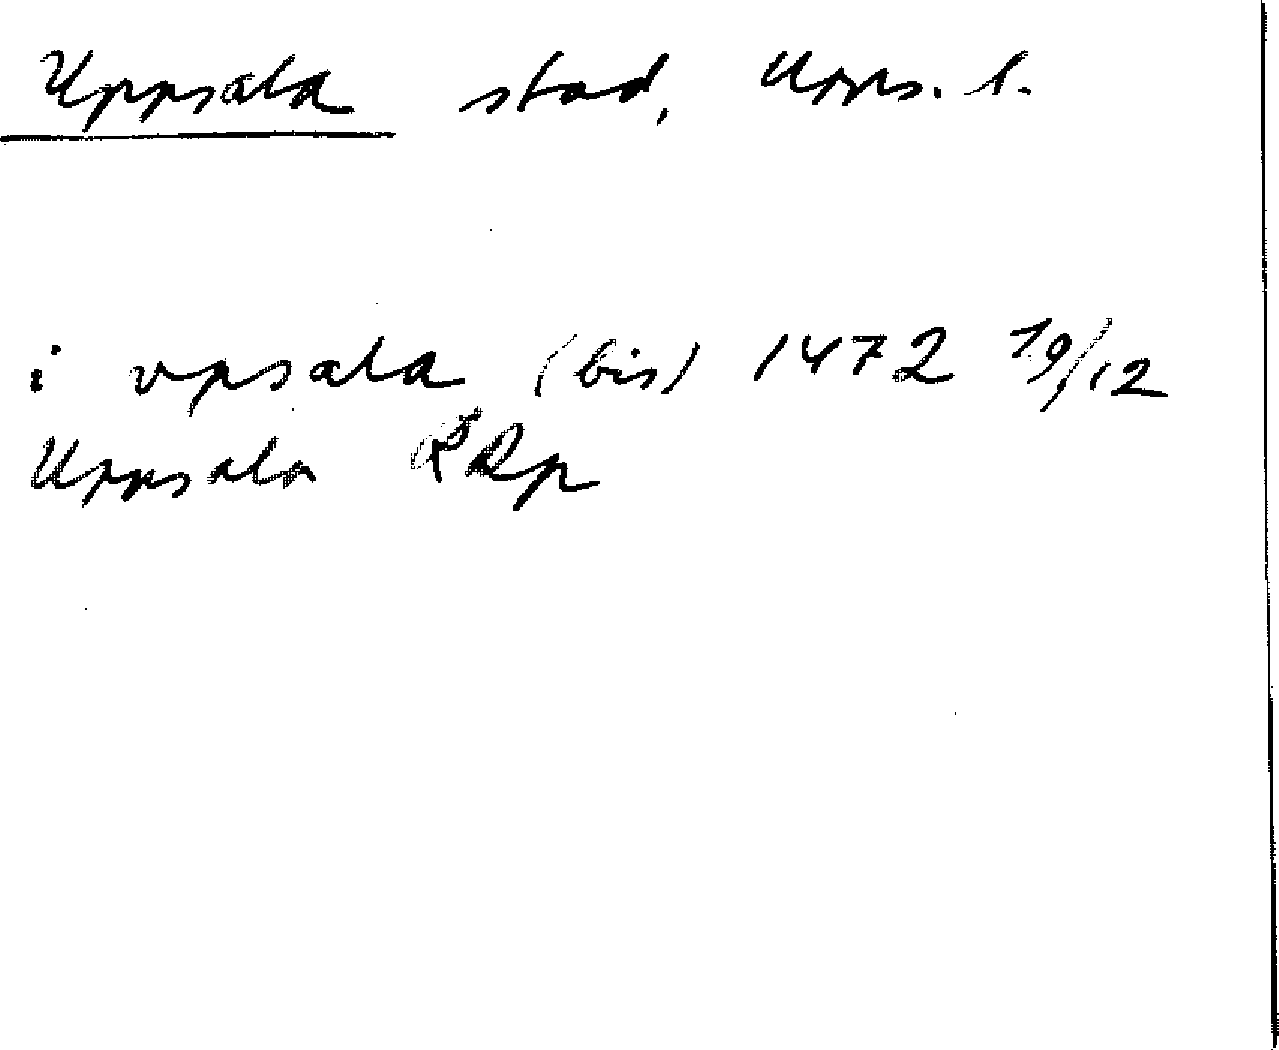 Uppsala stad, Upps. l.
i vpsala (bis) 1472 19/12
Uppsala RAp